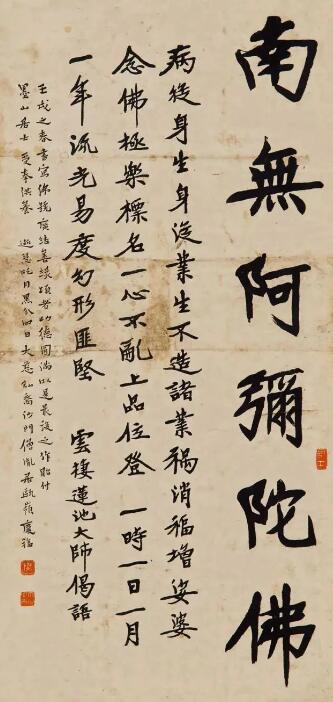 南無阿彌陀佛
病從身生身從業生不造諸業禍消福增娑婆
念佛極樂標名一心不亂上品位登 一時一日一月
一年流光易度幻形匪堅 雲棲蓮池大師偈語
壬戌之春書寫佛號廣結善緣頌者功德圓滿以是最後之作貽付
墨山居士 受奉供養 月黑分四日大慈 沙門僧胤居